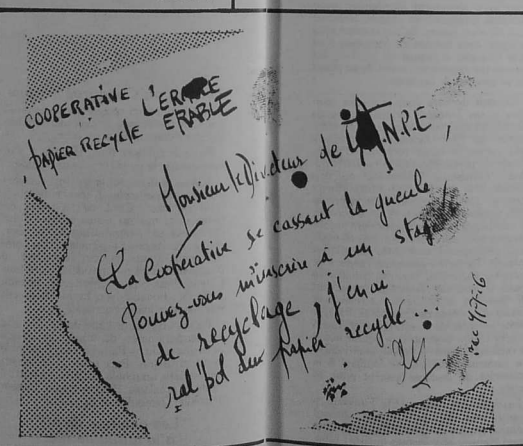 COOPERATIVE L'ERABLE
PAPIER RECYCLE ERABLE
Monsieur le Directeur de L'A.N.P.E,
La Coopérative se cassant la gueule
Pouvez-vous m'inscrire à un stage
de recyclage, j'en ai
ral'bol du papier recyclé...